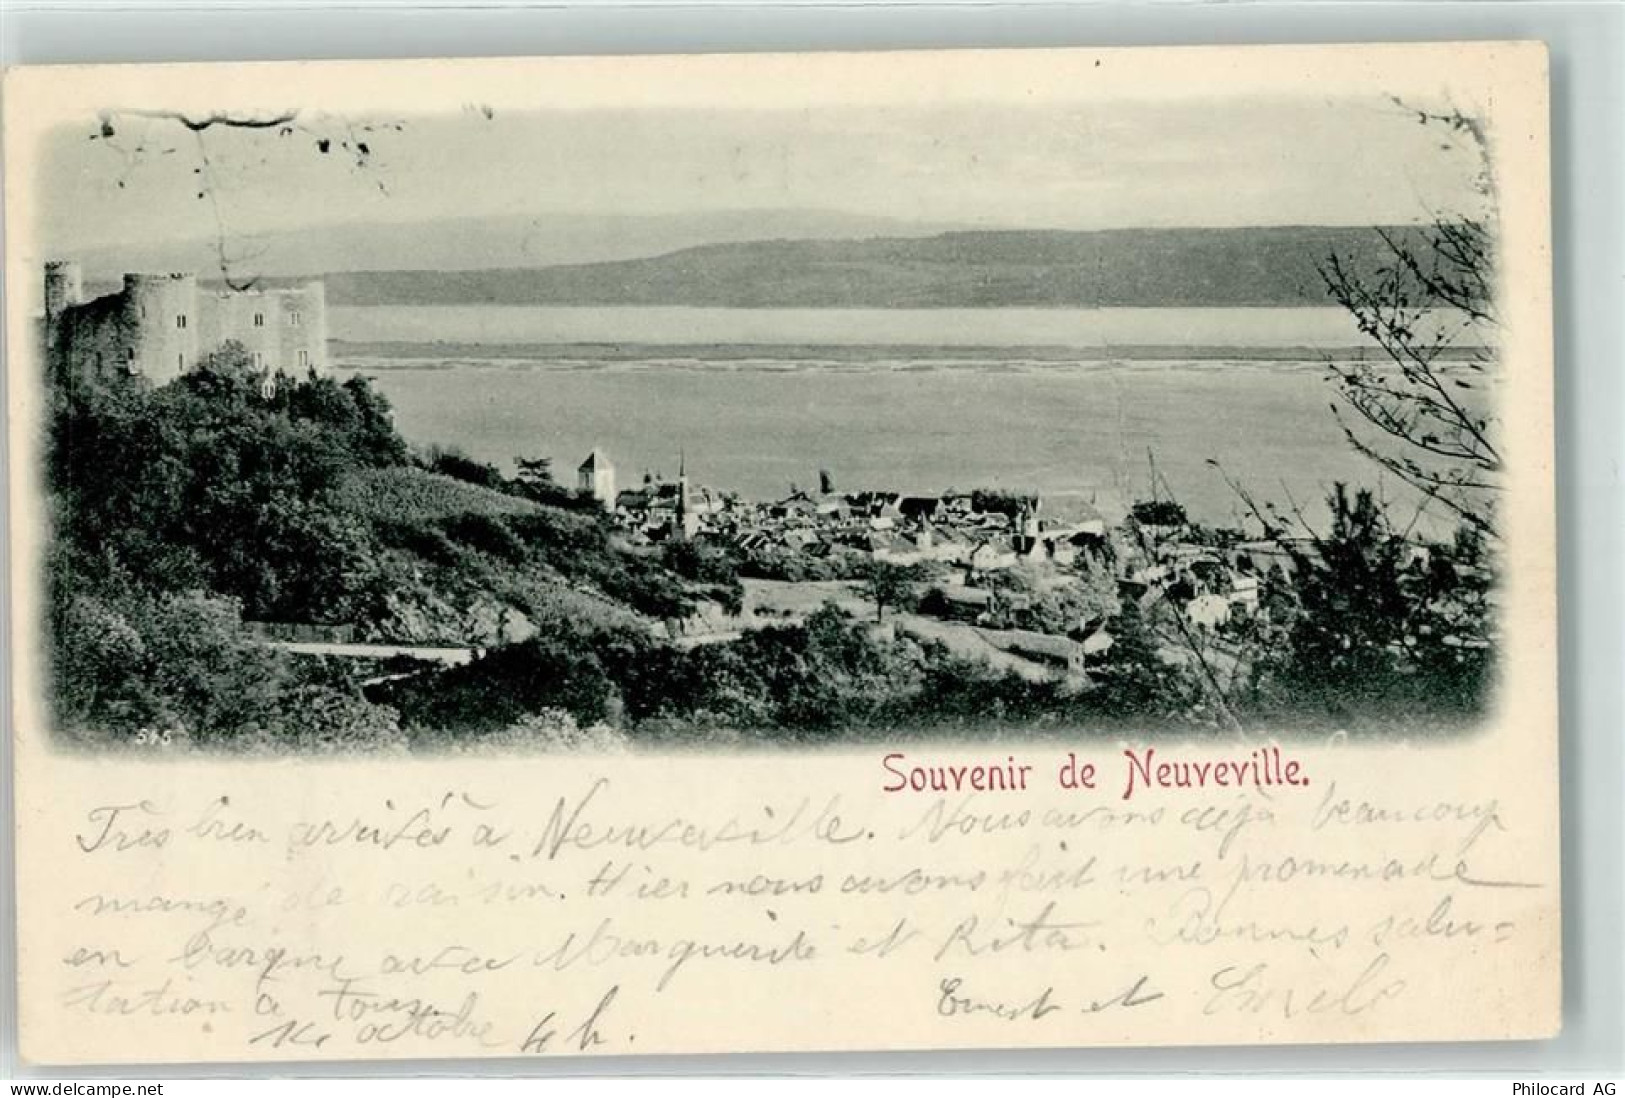 545
Souvenir de Neuveville.
Très bien arrivés à Neuveville. Nous avons déjà beaucoup
mangé de raisin. Hier nous avons fait une promenade
en barque avec Marguerite et Rita. Bonnes salu=
tation à tous. Ernest et
octobre 4 h.
delcampe.net
Philocard AG